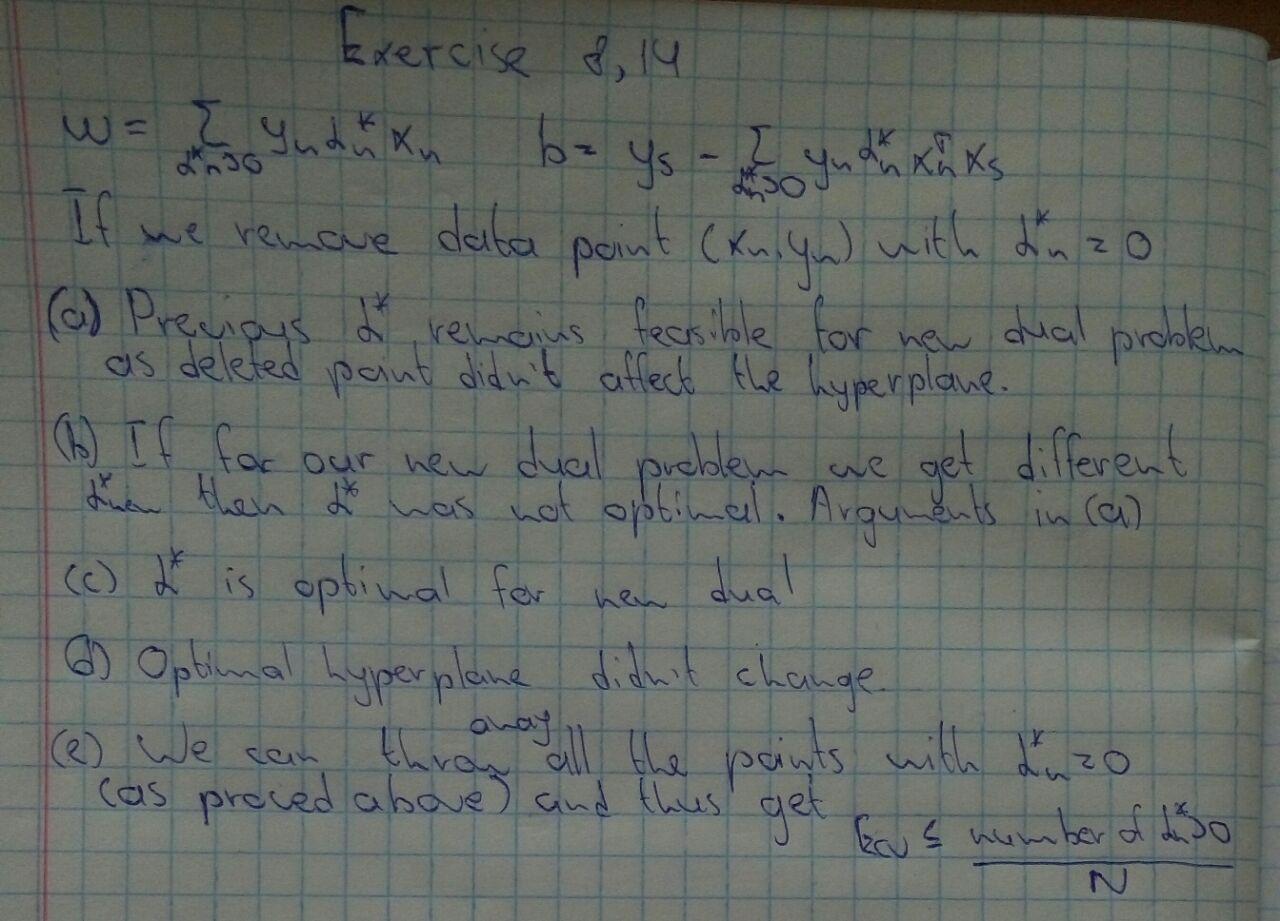 Exercise 8,14
w = Σ_{α*_n>0} y_n α*_n x_n b = y_s - Σ_{α*_n>0} y_n α*_n x_n^T x_s
If we remove data point (x_n, y_n) with α*_n = 0
(a) Previous α* remains feasible for new dual problem
as deleted point didn't affect the hyperplane.
(b) If for our new dual problem we get different
α*_new then α* was not optimal. Arguments in (a)
(c) α* is optimal for new dual
(d) Optimal hyperplane didn't change.
away
(e) We can throw all the points with α*_n = 0
(as proved above) and thus get
E_cv ≤ number of α*_n>0
N